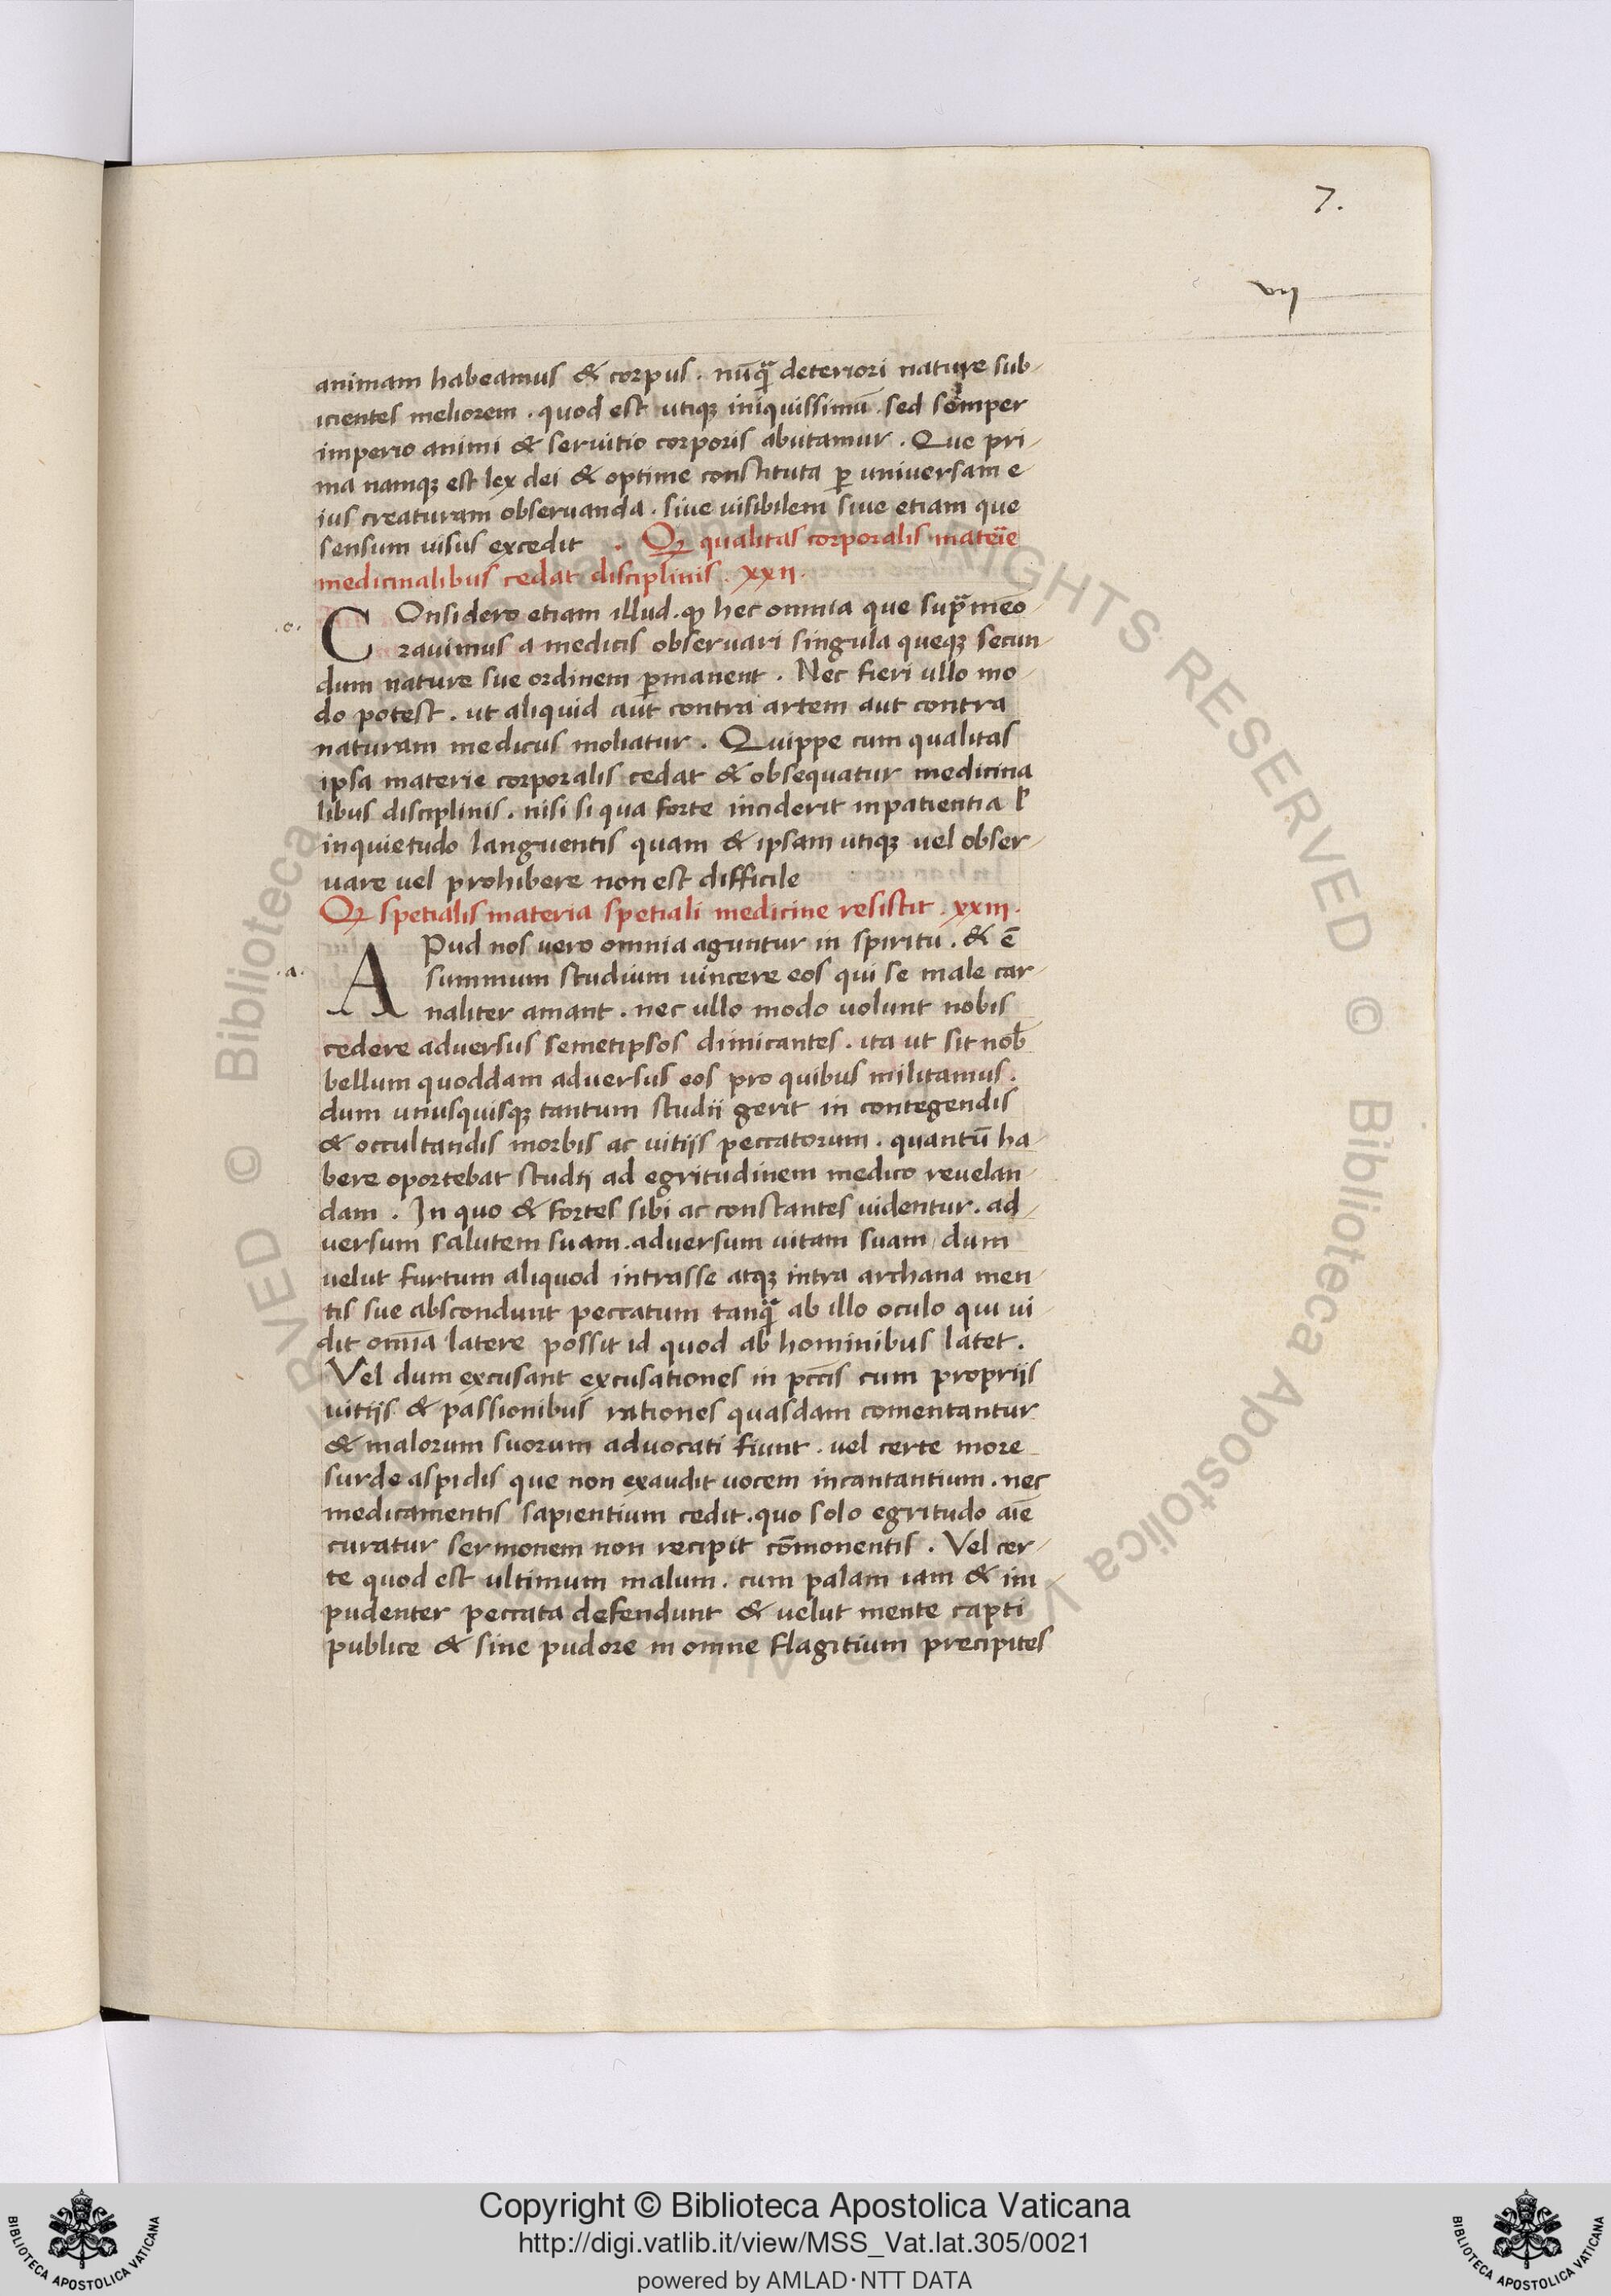 7.
vij
animam habeamus & corpus . nūq̄ deteriori nature sub-
icientes meliorem . quod est utiqꝫ iniquissimū . sed semper
imperio animi & seruitio corporis abutamur . Que pri-
ma namqꝫ est lex dei & optime constituta ꝑ universam e-
ius creaturam obseruanda . siue uisibilem siue etiam que
sensum uisus excedit . Qꝫ qualitas corporalis materie
medicinalibus cedat disciplinis . xxii .
.c. COnsidero etiam illud . ꝙ hec omnia que supͣ meo-
rauimus a medicis obseruari singula queqꝫ secun-
dum nature sue ordinem ꝑmanent . Nec fieri ullo mo-
do potest . ut aliquid aut contra artem aut contra
naturam medicus moliatur . Quippe cum qualitas
ipsa materie corporalis cedat & obsequatur medicina
libus disciplinis . nisi si qua forte inciderit inpatientia ł
inquietudo languentis quam & ipsam utiqꝫ uel obser-
uare uel prohibere non est difficile
Qꝫ spetialis materia spetiali medicine resistit . xxiii .
.a. APud nos uero omnia aguntur in spiritu . & ē
summum studium uincere eos qui se male car-
naliter amant . nec ullo modo uolunt nobis
cedere adversus semetipsos dimicantes . ita ut sit nob̄
bellum quoddam adversus eos pro quibus militamus .
dum unusquisqꝫ tantum studii gerit in contegendis
& occultandis morbis ac uitijs peccatorum . quantū ha-
bere oportebat studij ad egritudinem medico reuelan-
dam . In quo & fortes sibi ac constantes uidentur . ad-
uersum salutem suam . adversum uitam suam / dum
uelut furtum aliquod intrasse atqꝫ intra archana men-
tis sue abscondunt peccatum tanq̄ ab illo oculo qui ui-
dit om̄ia latere possit id quod ab hominibus latet .
Vel dum excusant excusationes in pccīs cum proprijs
uitijs & passionibus rationes quasdam comentantur
& malorum suorum advocati fiunt . uel certe more
surde aspidis que non exaudit uocem incantantium . nec
medicamentis sapientium cedit . quo solo egritudo aīe
curatur sermonem non recipit cōmonentis . Vel cer-
te quod est ultimum malum . cum palam iam & im-
pudenter peccata defendunt & uelut mente capti
publice & sine pudore in omne flagitium precipites
Copyright © Biblioteca Apostolica Vaticana
http://digi.vatlib.it/view/MSS_Vat.lat.305/0021
powered by AMLAD·NTT DATA
BIBLIOTECA APOSTOLICA VATICANA
BIBLIOTECA APOSTOLICA VATICANA